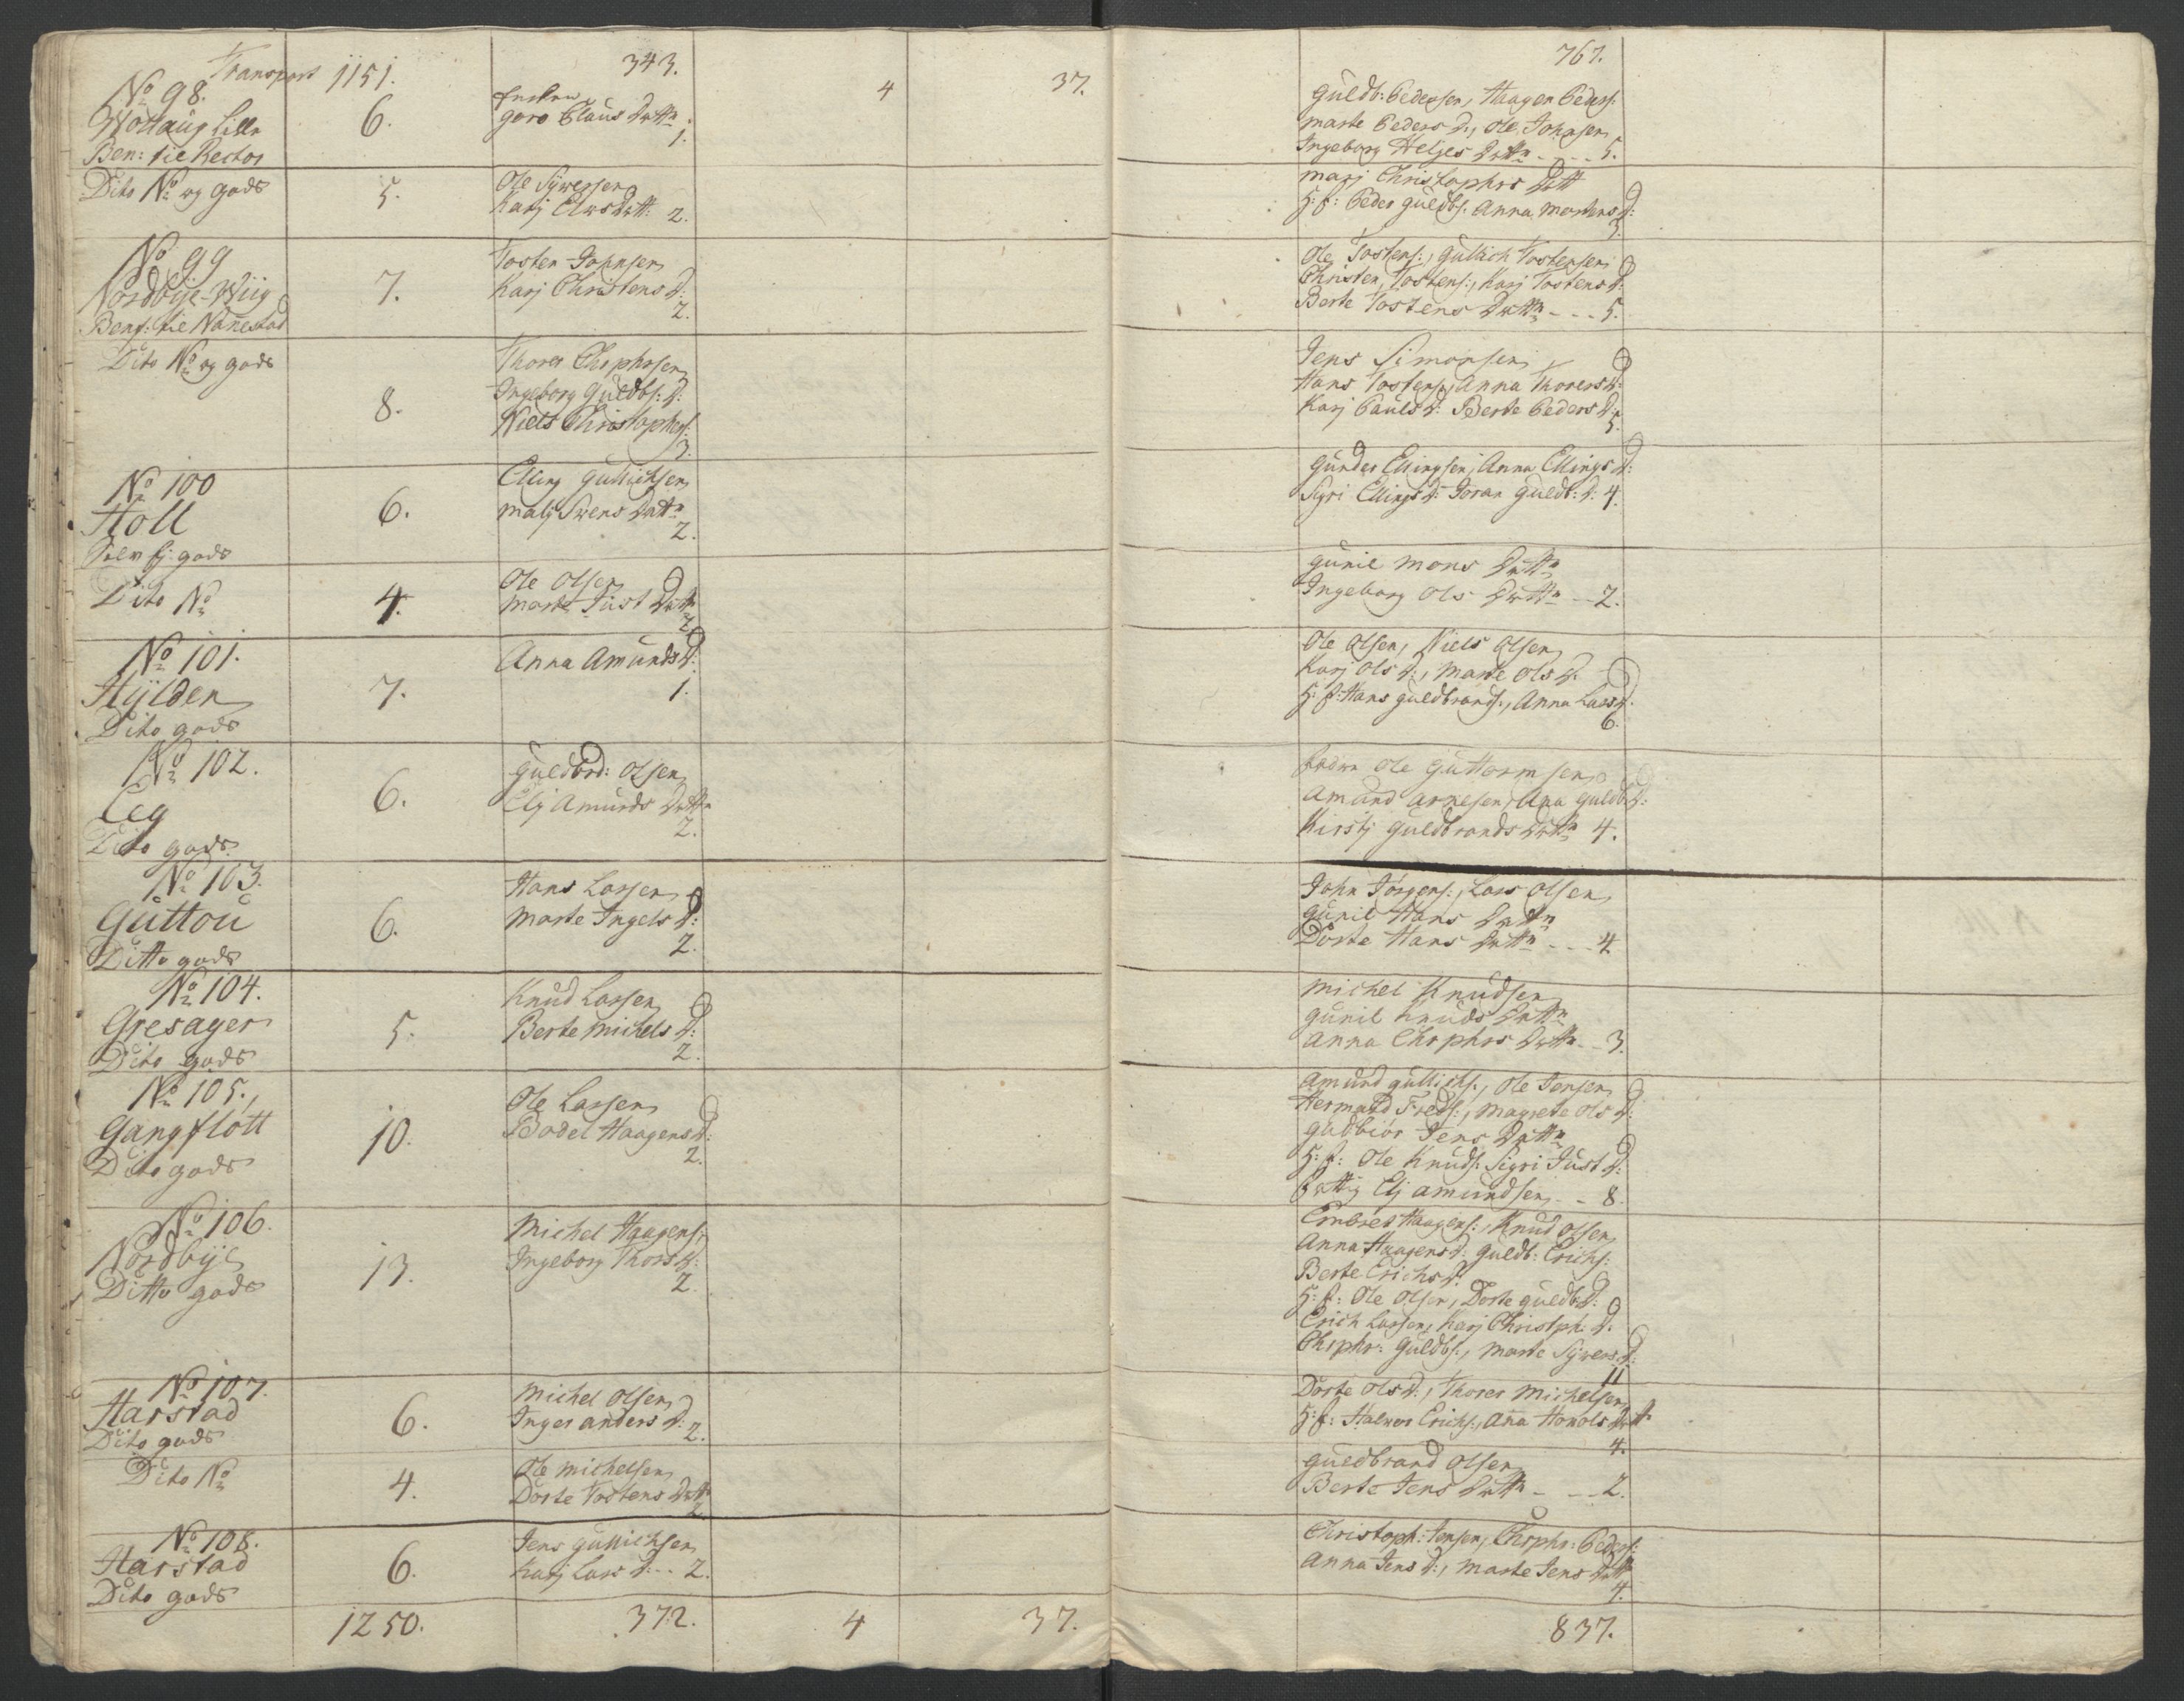 Transport 1151. 343. 4 37. 767.
No 98.
Ben: til Rector
6.
Encken
goro Claus Dattr
1.
Guldb: Pedersen, Haagen Peders:
marte Peders D:, Ole Johnsen
Ingeborg Helges Dattr - - - 5.
Dito No og gods
5.
Ole Sywersen
Karj Elws Datt: 2.
marj Christophers Datt
H: f: Peder guldbs: Anna Mortens D:
3.
No 99
Nordbye-Wiig
Benf: til Nanestad
7.
Tosten Johnsen
Karj Christens D:
2.
Ole Tostens:, Gullich Tostensen
Christen Tostens:, Karj Tostens D:
Berte Tostens Dattr - - - 5.
Dito No og gods
8.
Thorer Chrphersen
Ingeborg Guldbs: D:
Niels Christophers:
3.
Jens Simonsen
Hans Tostens, Anna Thorers D:
Karj Pauls D: Berte Peders D:
5.
No 100
Holl
Selv Ej: gods
6.
Elling Gullichsen
malj Swens Dattr
2.
Gunder Ellingsen, Anna Ellings D:
Sigri Ellings D: Joran Guldb: D: 4.
Dito No
4.
Ole Olsen
Marte Just Dattr
2.
Gunil Mons Dattr
Ingeborg Ols Dattr - - 2.
No 101.
Hylden
Dito gods
7.
Anna Amunds D:
1.
Ole Olsen, Niels Olsen
Karj Ols D:, Marte Ols D.
H: f: Hans Guldbrands:, Anna Lars D.
6.
No 102.
Eeg
Dito gods
6.
Guldbrd: Olsen
Elj Amunds Dattr
2.
Ole Guttormsen
Amund Arnesen, Ana Guldb: D:
Kirstj Guldbrands Dattr 4.
No 103.
Guttou
Ditto gods
6.
Hans Larsen
Marte Ingels D:
2.
John Jörgens:, Lars Olsen
Gunil Hans Dattr
Dorte Hans Dattr - - - 4.
No 104.
Gresager
Dito gods
5.
Knud Larsen
Berte Michels D:
2.
Michel Knudsen
Gunil Knuds Dattr
Anna Chrphers Dattr - - 3.
No 105.
Gangflött
Dito gods
10.
Ole Larsen
Bodel Haagens D:
2.
Amund Gullichs:, Ole Jensen
Hermand Freds:, Magrete Ols D:
Gudbiör Jens Dattr
H: f: Ole Knuds: Sigri Just D:
Elj Amundsen - - 8.
No 106.
Nordbye
Ditto gods
13.
Michel Haagens:
Ingeborg Thors D:
2.
Embret Haagens:, Knud Olsen
Anna Haagens D: Guldb: Erichs:
Berte Erichs D.
H: f: Ole Olsen, Dorte Guldb: D:
Erich Larsen, Karj Christph: D.
Chrphr: Guldbs:, Marte Sywers D:
11
No 107.
Harstad
Dito gods
6.
Michel Olsen
Inger Anders D: 2.
Dorte Ols D:, Thorer Michelsen
H: f: Halwor Erichs:, Ana Harols Datr
4.
Dito No
4.
Ole Michelsen
Dorte Tostens Dattr
2.
Guldbrand Olsen
Berte Jens Dattr - - - 2.
No 108.
Harstad
Dito gods
6.
Jens Gullichsen
Karj Lars D. - - 2.
Christoph: Jensen, Chrphr: Peders:
Anna Jens D:, Marte Jens Dattr
4.
1250. 372. 4 37. 837.